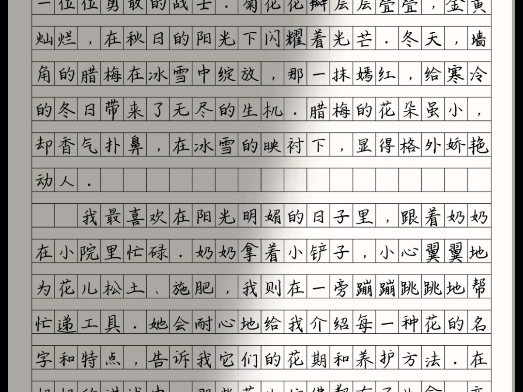 一位位勇敢的战士．菊花花瓣层层叠叠，金黄
灿烂，在秋日的阳光下闪耀着光芒．冬天，墙
角的腊梅在冰雪中绽放，那一抹嫣红，给寒冷
的冬日带来了无尽的生机．腊梅的花朵虽小，
却香气扑鼻，在冰雪的映衬下，显得格外娇艳
动人．
我最喜欢在阳光明媚的日子里，跟着奶奶
在小院里忙碌．奶奶拿着小铲子，小心翼翼地
为花儿松土、施肥，我则在一旁蹦蹦跳跳地帮
忙递工具．她会耐心地给我介绍每一种花的名
字和特点，告诉我它们的花期和养护方法．在